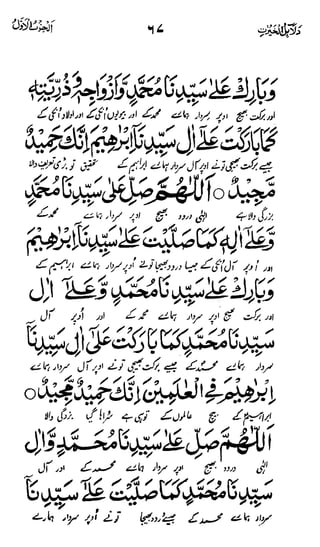 دلائل الخیرات ۶۷ الحزب الاول
وَبَارِكْ عَلٰى سَيِّدِنَا مُحَمَّدٍ وَّاَزْوَاجِهٖ وَذُرِّيَّتِهٖ
اور برکت بھیج اوپر سردار ہمارے محمد کے اور بیویوں انکی کے اور اولاد انکی کے
كَمَا بَارَكْتَ عَلٰى اٰلِ سَيِّدِنَا اِبْرَاهِيْمَ اِنَّكَ حَمِيْدٌ
جیسے برکت بھیجی تو نے اوپر آل سردار ہمارے ابراہیم کے تحقیق تو بڑی تعریف والا
مَّجِيْدٌ ۝ اَللّٰهُمَّ صَلِّ عَلٰى سَيِّدِنَا مُحَمَّدٍ
بزرگی والا ہے الٰہی درود بھیج اوپر سردار ہمارے محمد کے
وَّعَلٰى اٰلِهٖ كَمَا صَلَّيْتَ عَلٰى سَيِّدِنَا اِبْرَاهِيْمَ
اور اوپر آل انکی کے جیسا درود بھیجا تو نے اوپر سردار ہمارے ابراہیم کے
وَبَارِكْ عَلٰى سَيِّدِنَا مُحَمَّدٍ وَّعَلٰى اٰلِ
اور برکت بھیج اوپر سردار ہمارے محمد کے اور اوپر آل
سَيِّدِنَا مُحَمَّدٍ كَمَا بَارَكْتَ عَلٰى اٰلِ سَيِّدِنَا
سردار ہمارے محمد کے جیسے برکت بھیجی تو نے اوپر آل سردار ہمارے
اِبْرَاهِيْمَ فِى الْعٰلَمِيْنَ اِنَّكَ حَمِيْدٌ مَّجِيْدٌ ۝
ابراہیم کے بیچ عالموں کے تو ہی ہے سراہا گیا بزرگی والا
اَللّٰهُمَّ صَلِّ عَلٰى سَيِّدِنَا مُحَمَّدٍ وَّاٰلِ
الٰہی درود بھیج اوپر سردار ہمارے محمد کے اور آل
سَيِّدِنَا مُحَمَّدٍ كَمَا صَلَّيْتَ عَلٰى سَيِّدِنَا
سردار ہمارے محمد کے جیسے درود بھیجا تو نے اوپر سردار ہمارے